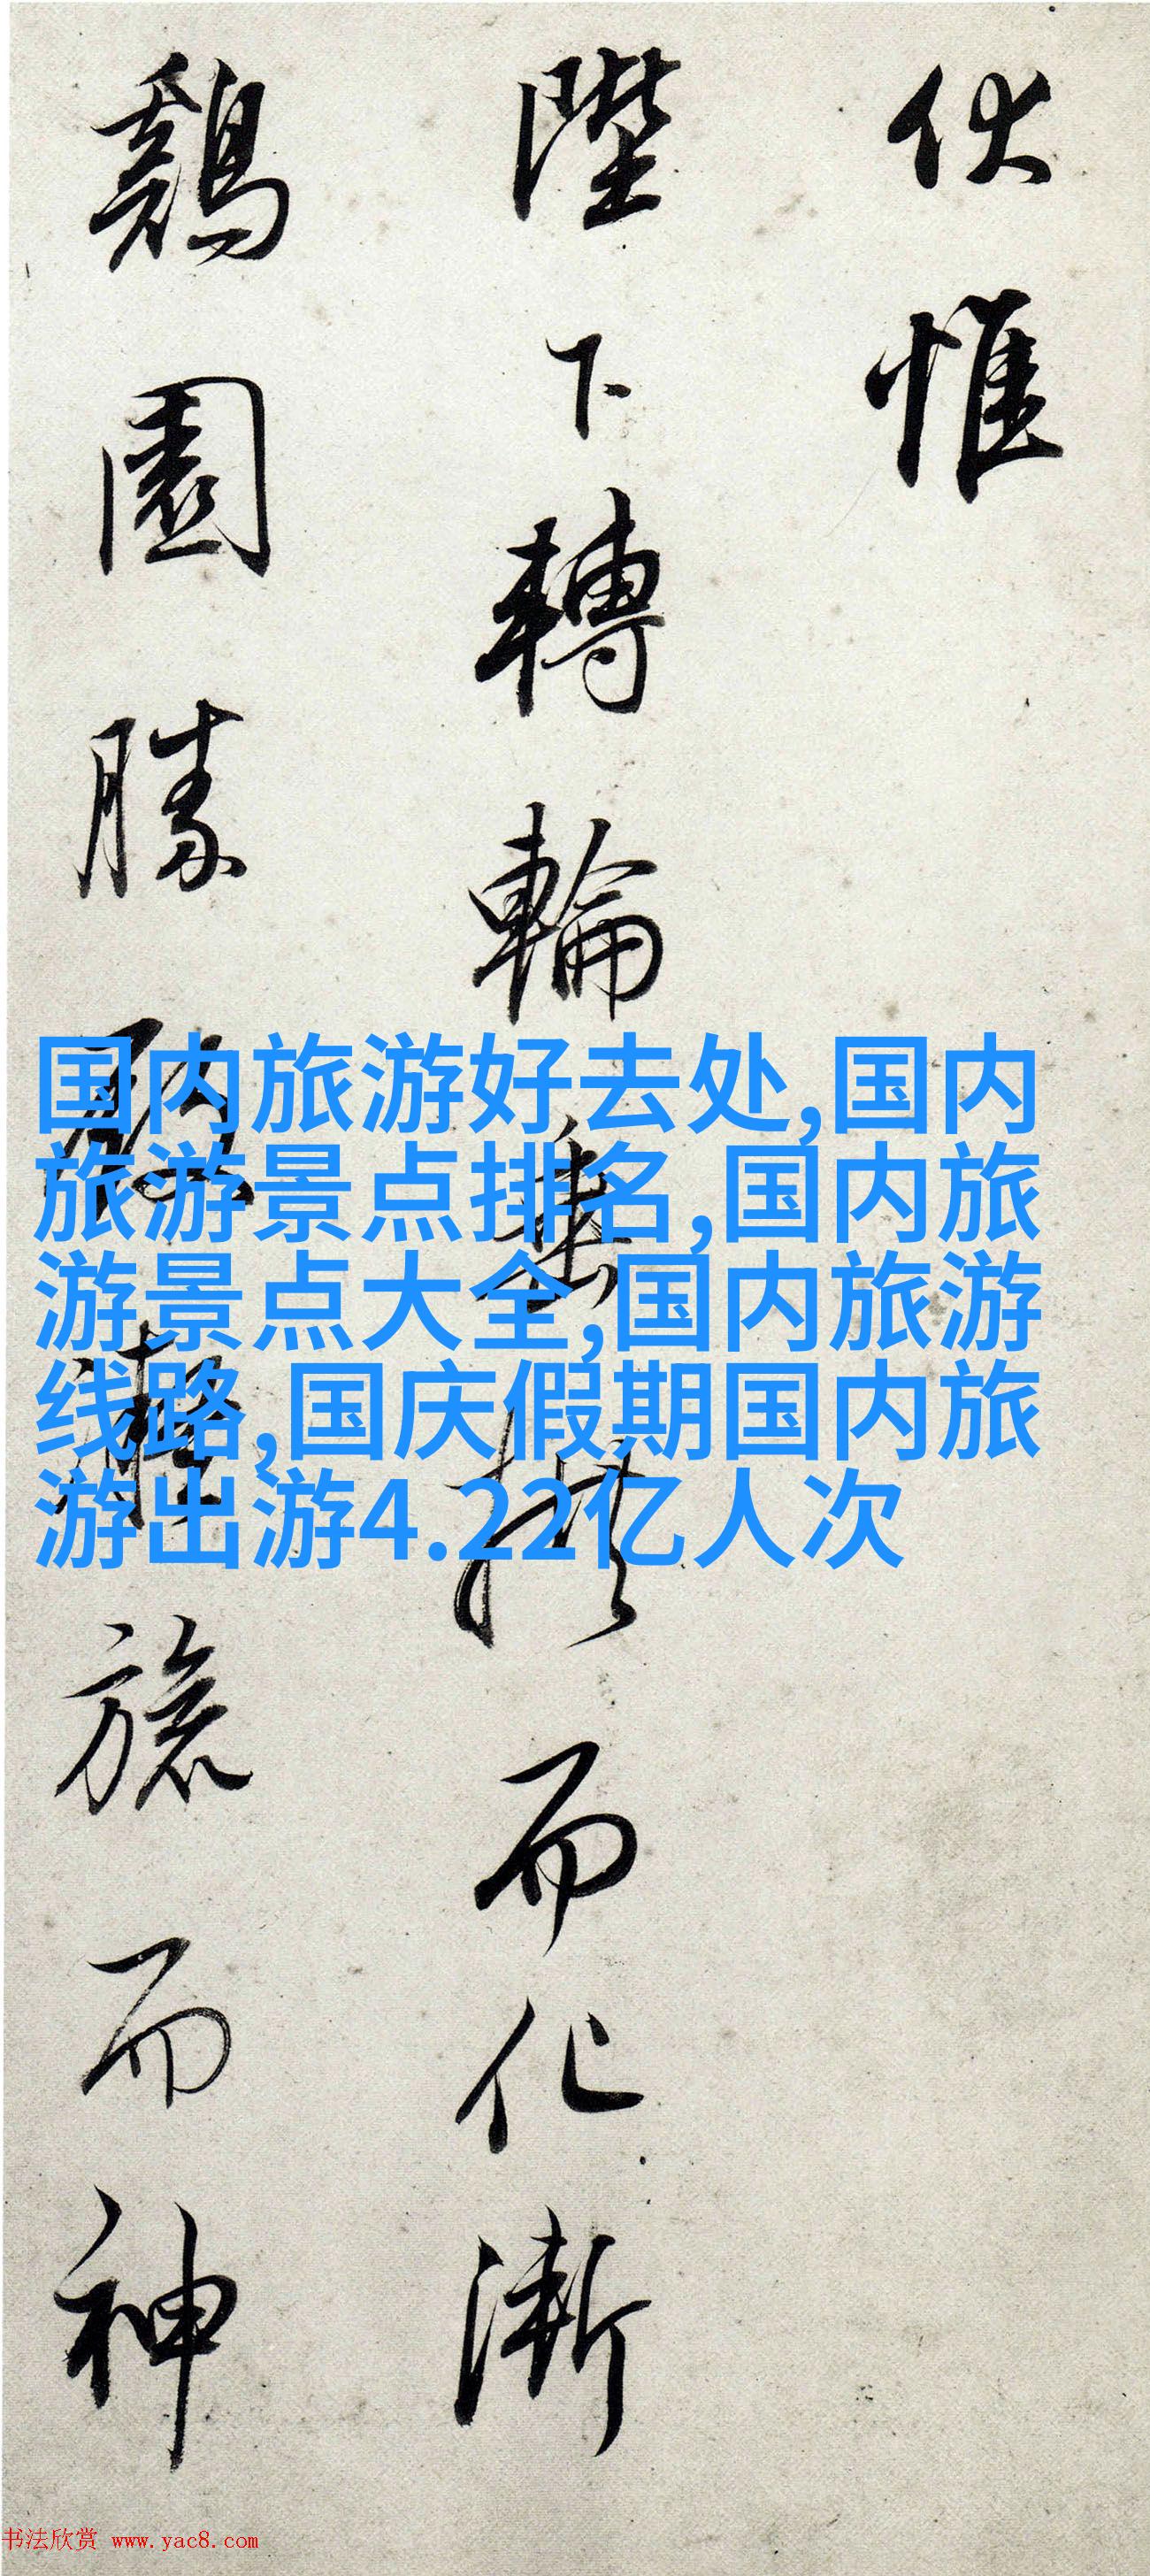 伏惟
陛下轉輪垂拱而化漸
鷄園勝
旅而神
国内旅游好去处,国内
旅游景点排名,国内旅
游景点大全,国内旅游
线路,国庆假期国内旅
游出游4.22亿人次
书法欣赏 www.yac8.com